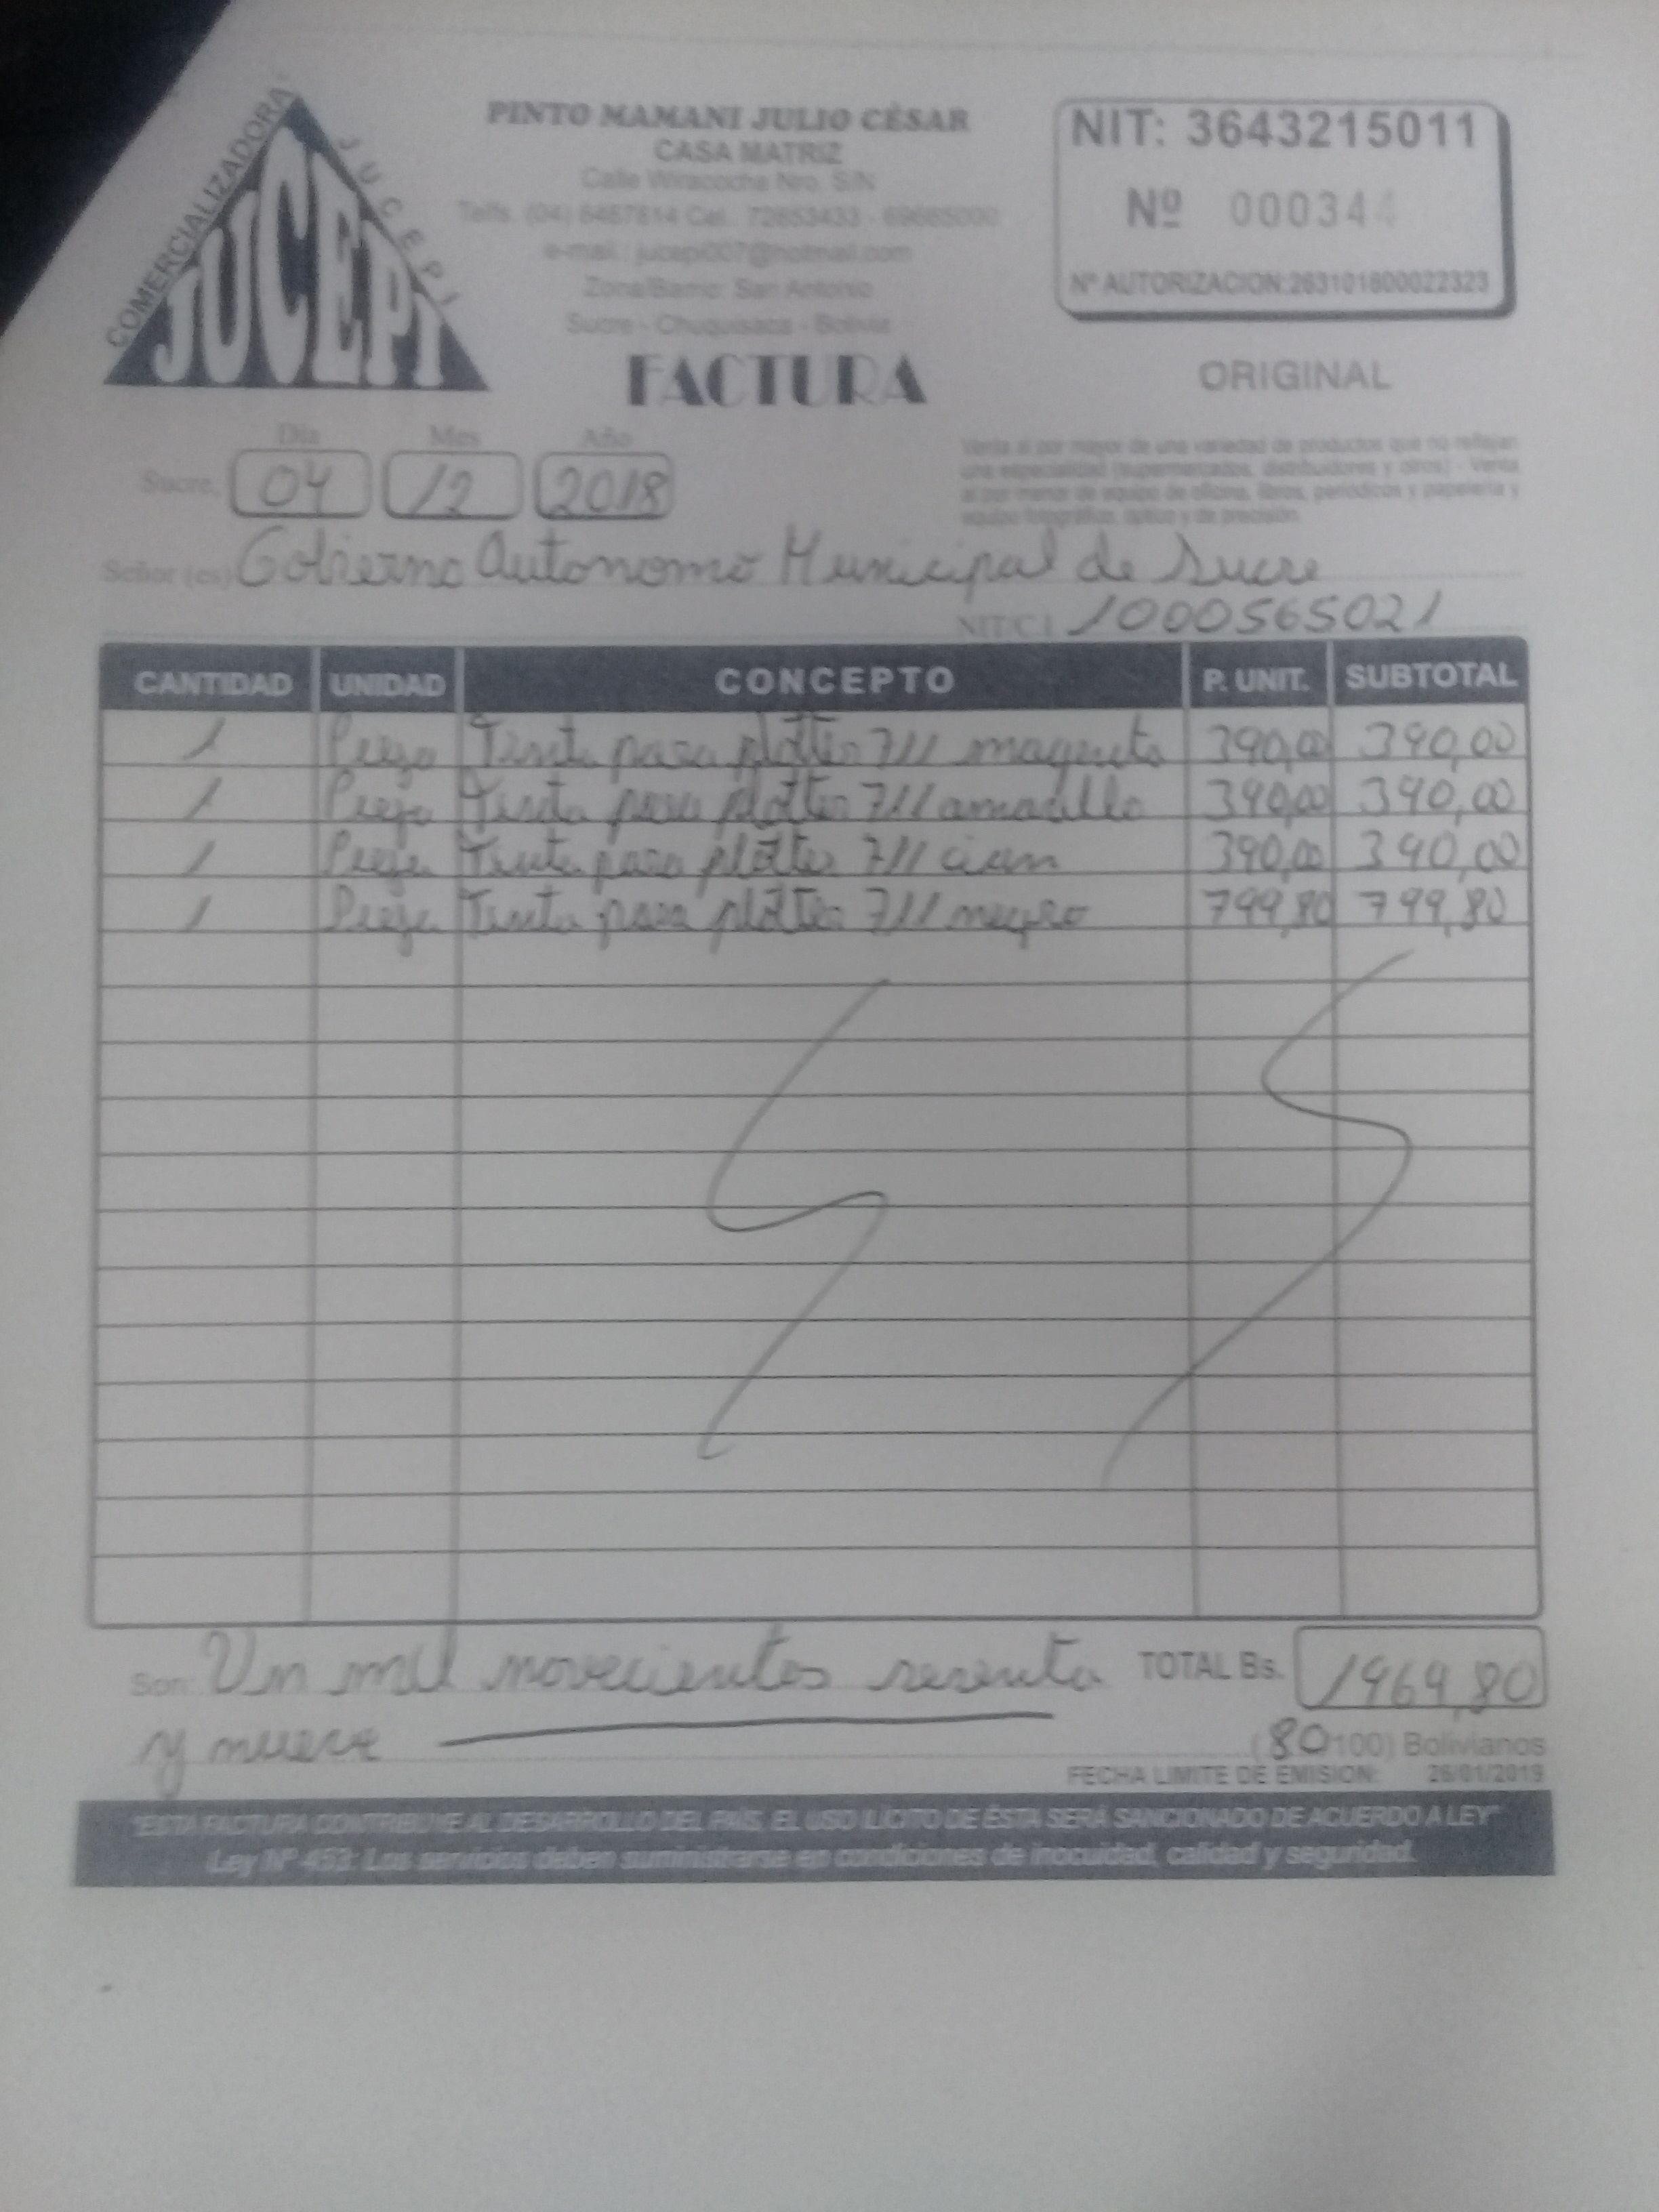 COMERCIALIZADORA
JUCEPI
JUCEPI
PINTO MAMANI JULIO CÉSAR
CASA MATRIZ
Calle Wiracocha Nro. S/N
Telfs. (04) 6457814 Cel.: 72853433 - 69665000
e-mail.: jucepi007@hotmail.com
Zona/Barrio: San Antonio
Sucre - Chuquisaca - Bolivia
FACTURA
NIT: 3643215011
Nº 000344
Nº AUTORIZACION:263101800022323
ORIGINAL
Venta al por mayor de una variedad de productos que no reflejan
una especialidad (supermercados, distribuidores y otros) - Venta
al por menor de equipo de oficina, libros, periodicos y papeleria y
equipo fotográfico, óptico y de precisión
Día Mes Año
Sucre, 04 12 2018
Señor (es) Gobierno Autonomo Municipal de Sucre
NIT/C.I. 1000565021
CANTIDAD UNIDAD CONCEPTO P. UNIT. SUBTOTAL
1 Pieza Tinta para plotter 711 magenta 390,00 390,00
1 Pieza Tinta para plotter 711 amarillo 390,00 390,00
1 Pieza Tinta para plotter 711 cian 390,00 390,00
1 Pieza Tinta para plotter 711 negro 799,80 799,80
Son: Un mil novecientos sesenta TOTAL Bs. 1969,80
y nueve (80/100) Bolivianos
FECHA LIMITE DE EMISION: 26/01/2019
"ESTA FACTURA CONTRIBUYE AL DESARROLLO DEL PAÍS. EL USO ILÍCITO DE ÉSTA SERÁ SANCIONADO DE ACUERDO A LEY"
Ley Nº 453: Los servicios deben suministrarse en condiciones de inocuidad, calidad y seguridad.